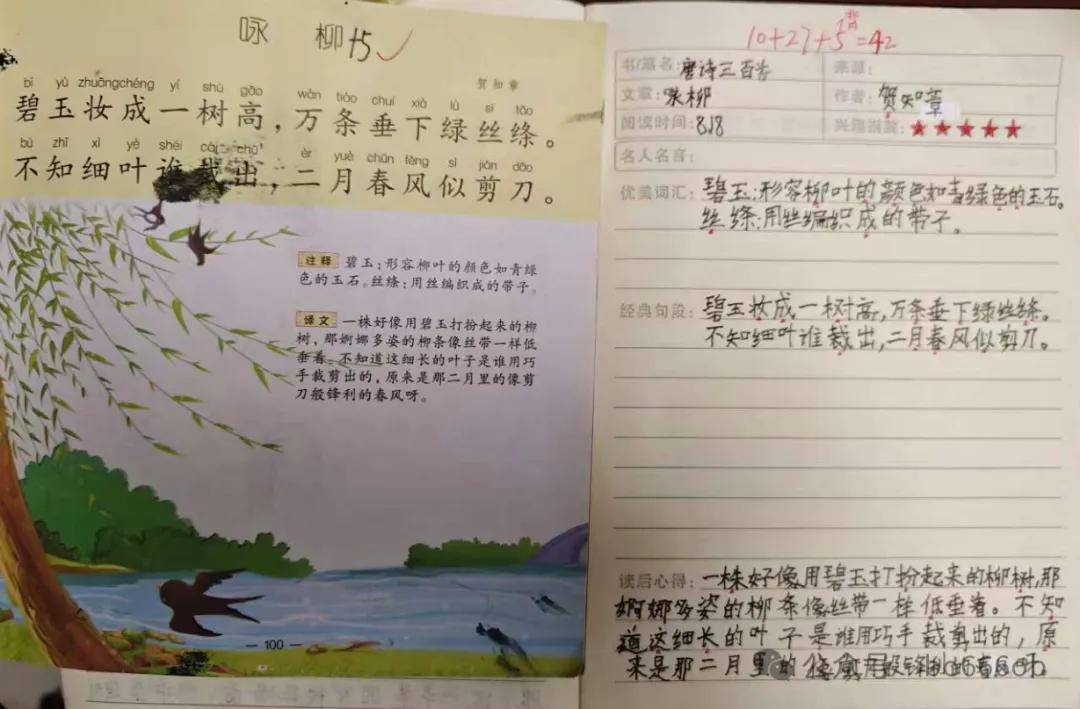 咏 柳
贺知章
bì yù zhuāngchéng yí shù gāo wàn tiáo chuí xià lǜ sī tāo
碧玉妆成一树高，万条垂下绿丝绦。
bù zhī xì yè shéi cái chū èr yuè chūn fēng sì jiǎn dāo
不知细叶谁裁出，二月春风似剪刀。
注释 碧玉：形容柳叶的颜色如青绿
色的玉石。丝绦：用丝编织成的带子。
译文 一株好像用碧玉打扮起来的柳
树，那婀娜多姿的柳条像丝带一样低
垂着。不知道这细长的叶子是谁用巧
手裁剪出的，原来是那二月里的像剪
刀般锋利的春风呀。
100
10+27+5=42
书/篇名：唐诗三百首
来源：
文章：咏柳
作者：贺知章
阅读时间：8.18
兴趣指数：★★★★★
名人名言：
优美词汇：碧玉：形容柳叶的颜色如青绿色的玉石。
丝绦：用丝编织成的带子。
经典句段：碧玉妆成一树高，万条垂下绿丝绦。
不知细叶谁裁出，二月春风似剪刀。
读后心得：一株好像用碧玉打扮起来的柳树，那
婀娜多姿的柳条像丝带一样低垂着。不知
道这细长的叶子是谁用巧手裁剪出的，原
来是那二月里的